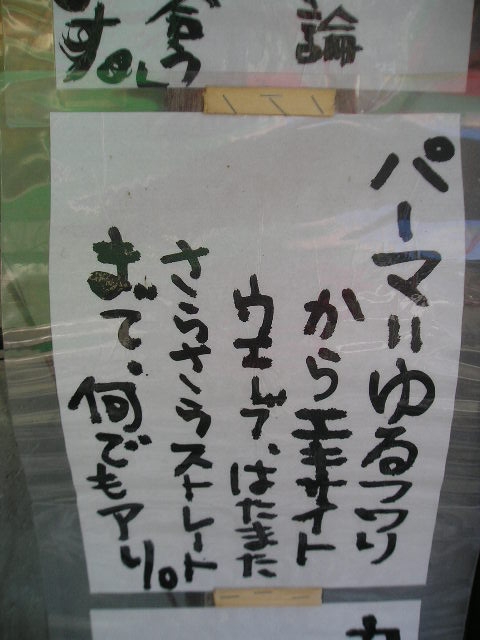 論
パーマ=ゆるフワリ
からエキサイト
ウェーブ、はたまた
さらさらストレート
まで、何でもアリ。